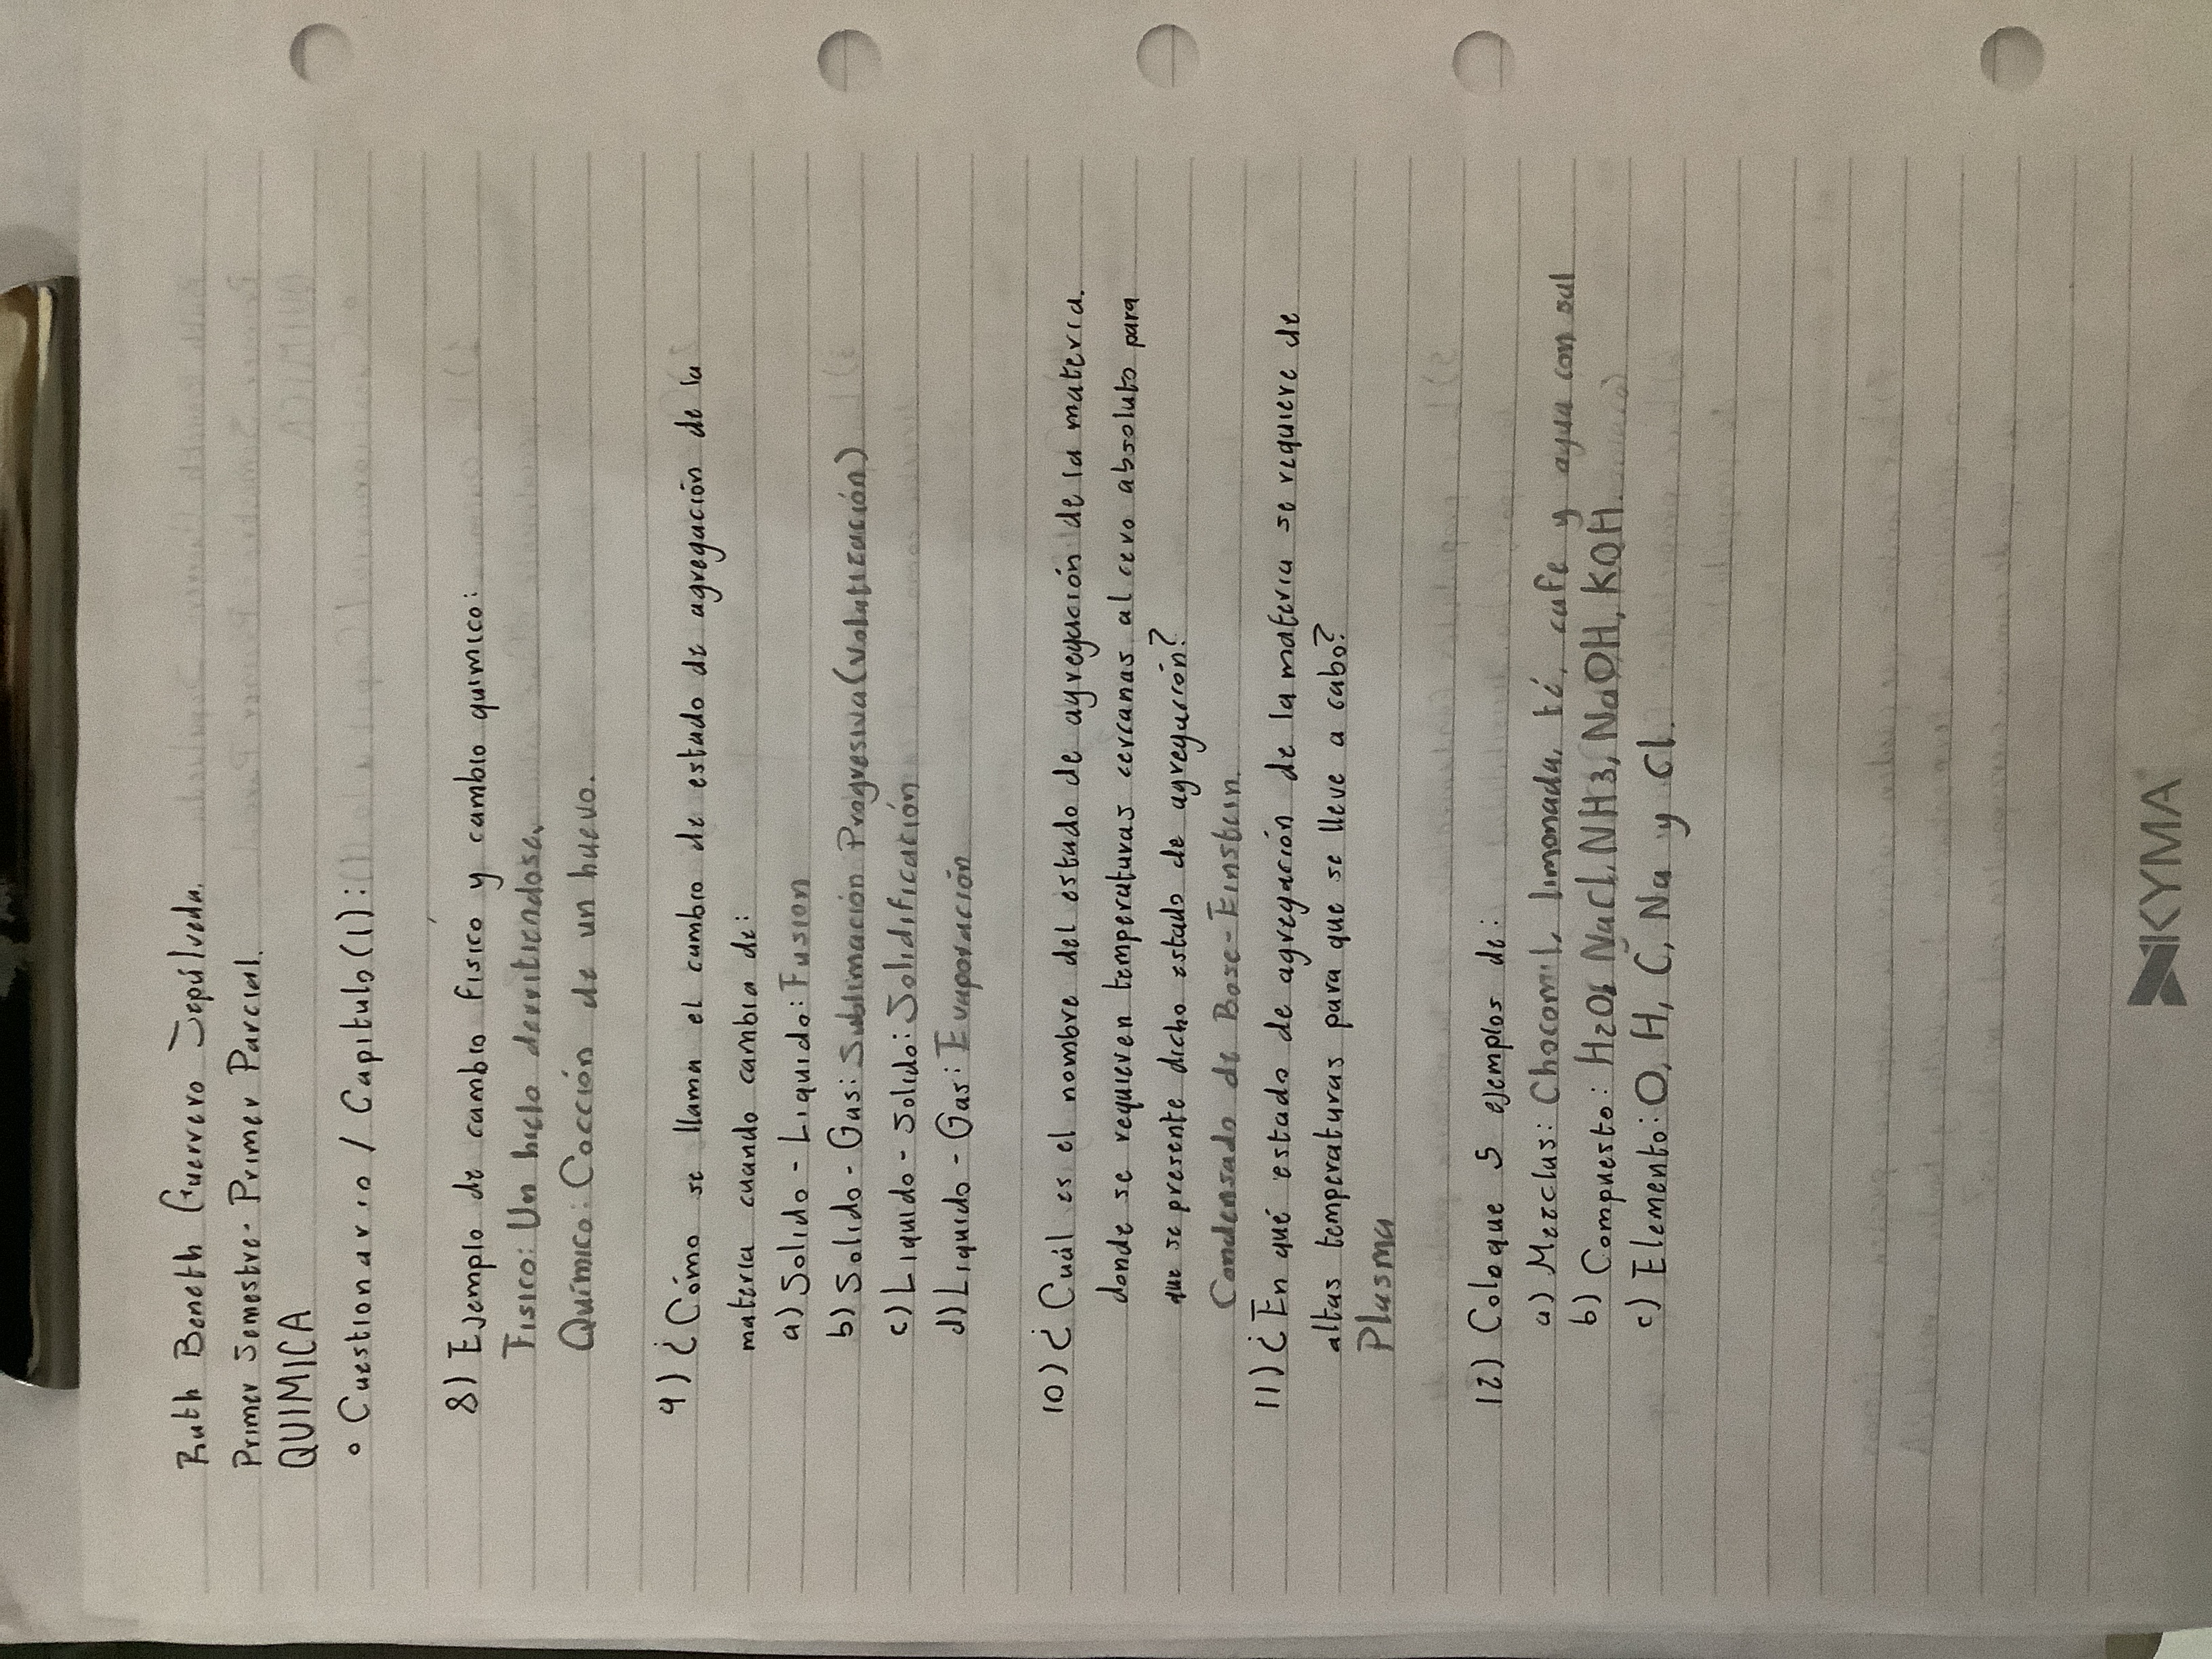 Ruth Beneth Guerrero Sepúlveda.
Primer Semestre- Primer Parcial.
QUIMICA
° Cuestionario / Capitulo (1):
8) Ejemplo de cambio fisico y cambio quimico:
Fisico: Un hielo derritiendose.
Químico: Cocción de un huevo.
9) ¿Cómo se llama el cambio de estado de agregación de la
materia cuando cambia de:
a) Solido - Liquido: Fusion
b) Solido - Gas: Sublimación Progresiva (Volatización)
c) Liquido - Solido: Solidificación
d) Liquido - Gas: Evaporación
10) ¿Cuál es el nombre del estado de agregación de la materia.
donde se requieren temperaturas cercanas al cero absoluto para
que se presente dicho estado de agregación?
Condensado de Bose-Einstein.
11) ¿En qué estado de agregación de la materia se requiere de
altas temperaturas para que se lleve a cabo?
Plasma
12) Coloque 5 ejemplos de:
a) Mezclas: Chocomil, limonada, té, cafe y agua con sal
b) Compuesto: H2O, NaCl, NH3, NaOH, KOH.
c) Elemento: O, H, C, Na y Cl.
KYMA